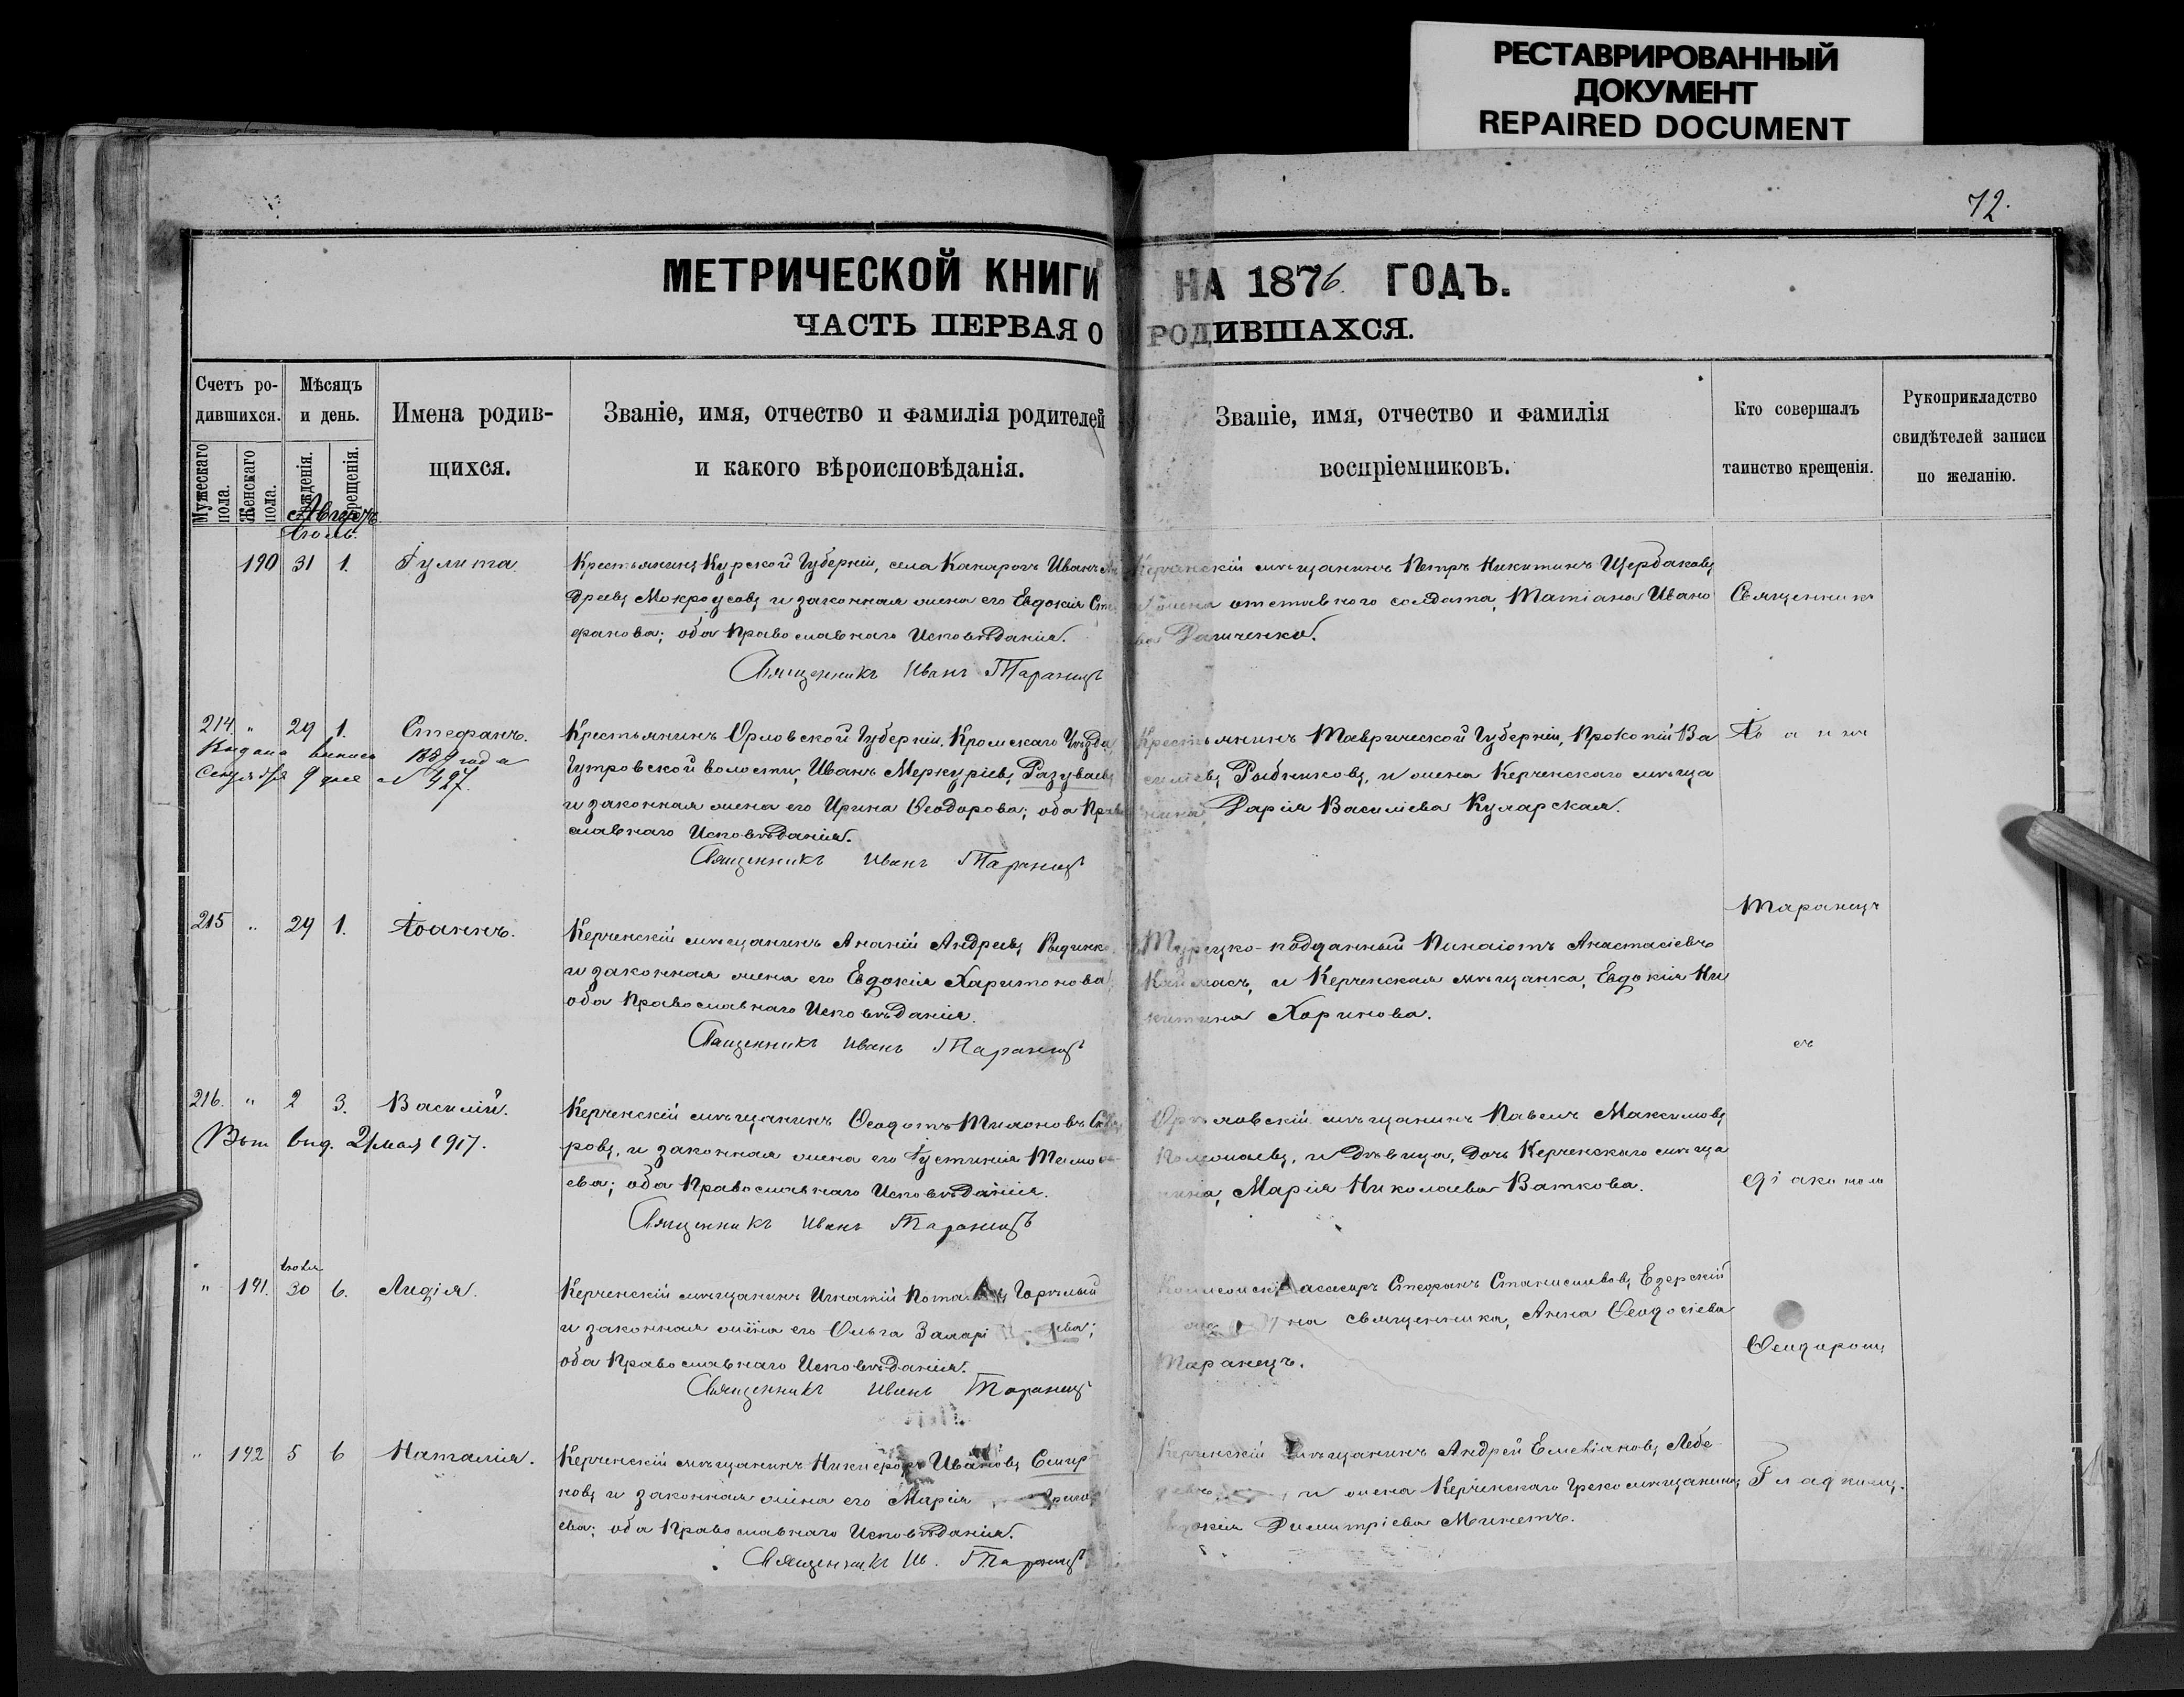 РЕСТАВРИРОВАННЫЙ
ДОКУМЕНТ
REPAIRED DOCUMENT
72.
МЕТРИЧЕСКОЙ КНИГИ НА 1876. ГОДЪ.
ЧАСТЬ ПЕРВАЯ О РОДИВШАХСЯ.
Счетъ ро-
дившихся.
Мужескаго пола.
Женскаго пола.
Мѣсяцъ
и день.
рожденія.
крещенія.
Имена родив-
щихся.
Званіе, имя, отчество и фамилія родителей
и какого вѣроисповѣданія.
Званіе, имя, отчество и фамилія
воспріемниковъ.
Кто совершалъ
таинство крещенія.
Рукоприкладство
свидѣтелей записи
по желанію.
Августъ
Іюль.
190 31 1. Іулита.
Крестьянинъ Курской Губерніи, села Иванъ Ан
дреевъ Мокроусовъ и законная жена его Евдокія Сте
фанова; оба Православнаго Исповѣданія.
Священникъ Иванъ Таранецъ
Керченскій мѣщанинъ Петръ Никитинъ Щербаковъ
и жена отставного солдата, Татіана Ивано
ва
Священникъ
214. " 29 1. Стефанъ.
Выдана выпись 1889 года
Сентября 9 дня № 427.
Крестьянинъ Орловской Губерніи, Кромскаго Уѣзда,
Гутровской волости, Иванъ Меркуріевъ Разуваевъ
и законная жена его Ирина Ѳеодорова; оба Право
славнаго Исповѣданія.
Священникъ Иванъ Таранецъ
Крестьянинъ Таврической Губерніи, Прокопій Ва
силіевъ Рыбниковъ, и жена Керченскаго мѣща
нина, Дарія Василіева Куларская.
Іоаннъ
Таранецъ
215 " 29 1. Іоаннъ.
Керченскій мѣщанинъ Ананій Андреевъ
и законная жена его Евдокія Харитонова;
оба Православнаго Исповѣданія.
Священникъ Иванъ Таранецъ
Турецко-подданный Пинаіотъ Анастасіевъ
и Керченская мѣщанка, Евдокія Ни
китина Хоринова.
съ
216. " 2 3. Василій.
выд. 21 мая 1917.
Керченскій мѣщанинъ Ѳеодотъ
ровъ, и законная жена его Іустинія
ева; оба Православнаго Исповѣданія.
Священникъ Иванъ Таранецъ
мѣщанинъ Павелъ Максимовъ
и дѣвица, дочь Керченскаго мѣща
нина, Марія Николаева Ваткова.
діакономъ
" 191. Іюля 30 6. Лидія.
Керченскій мѣщанинъ Игнатій
и законная жена его Ольга
оба Православнаго Исповѣданія.
Священникъ Иванъ Таранецъ
Стефанъ Станиславовъ Езерскій
священника, Анна Ѳеодосіева
Таранецъ.
Ѳеодоромъ
" 192 5 6 Наталія.
Керченскій мѣщанинъ Никифоръ Ивановъ Смир
новъ и законная жена его Марія
ева; оба Православнаго Исповѣданія.
Священникъ Ив. Таранецъ
Керченскій мѣщанинъ Андрей Емеліановъ Лебе
и жена Керченскаго Греко мѣщанина,
Димитріева
Гладкимъ.